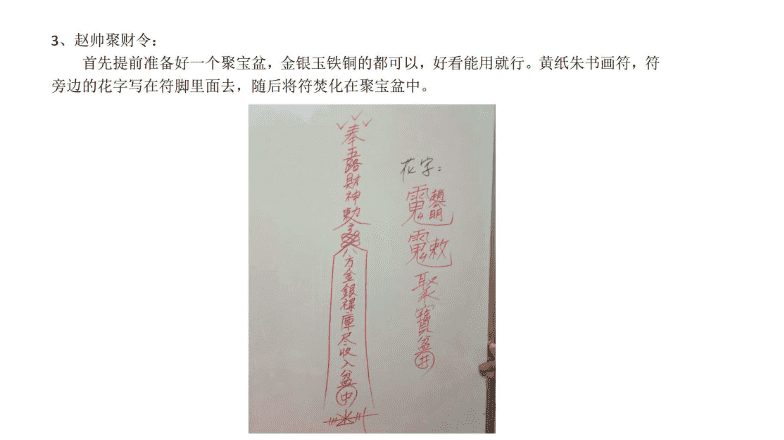 3、赵帅聚财令：
首先提前准备好一个聚宝盆，金银玉铁铜的都可以，好看能用就行。黄纸朱书画符，符
旁边的花字写在符脚里面去，随后将符焚化在聚宝盆中。
奉五路財神勅令
八方金銀禄庫尽收入盆中
花字：
趙明
敕
聚寶盆